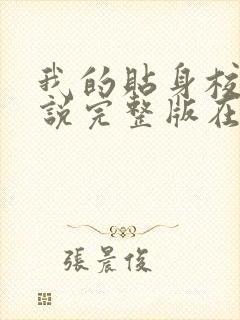 我的貼身校
說完整版在
張晨俊